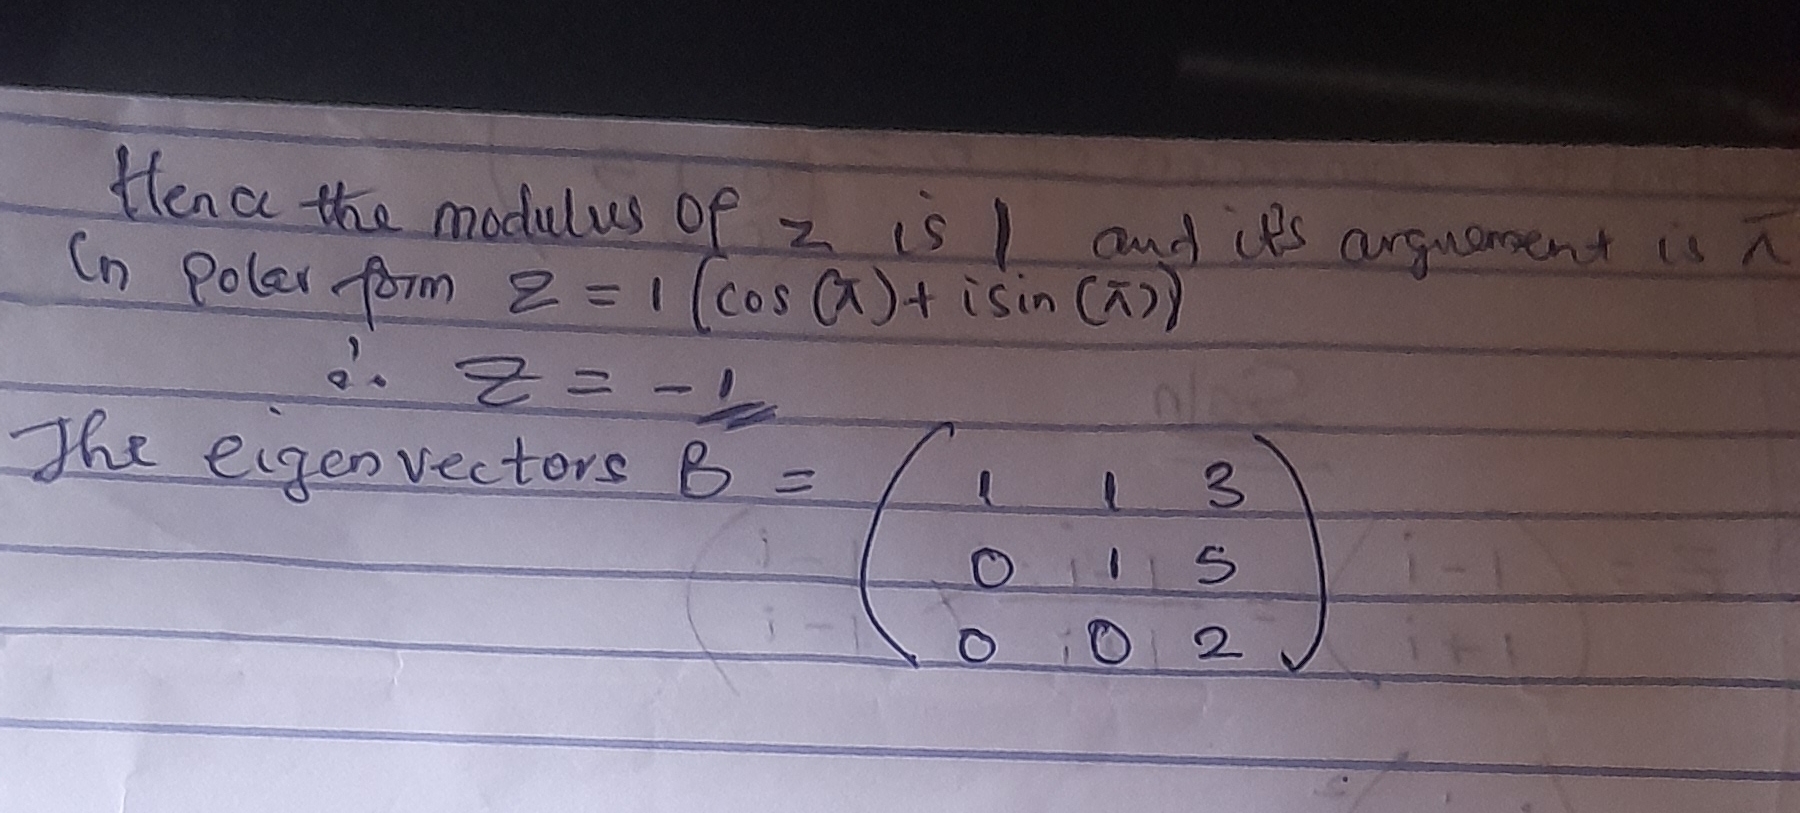 Hence the modulus of z is 1 and its arguement is π
In polar form z = 1 (cos (π) + i sin (π))
∴ z = -1
The eigen vectors B = ( 1 1 3
0 1 5
0 0 2 )